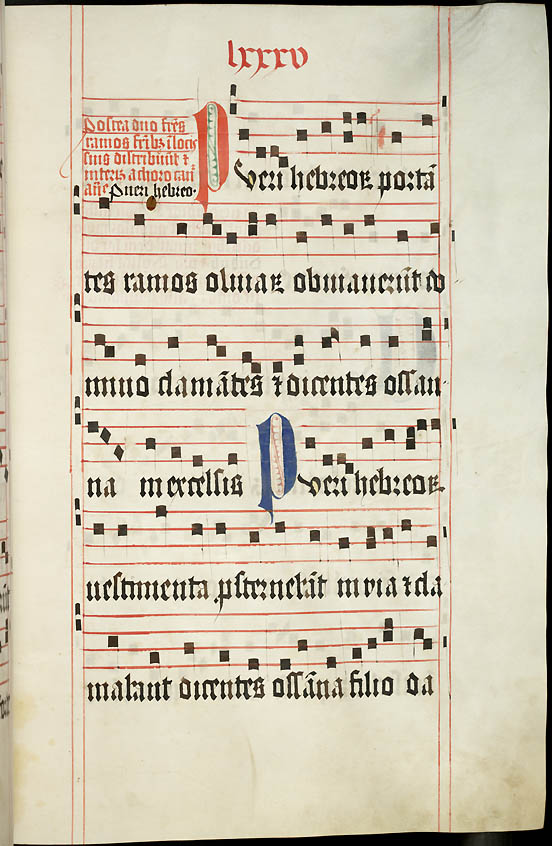 lxxxv
Postea duo fr̄es
ramos fr̄ibꝫ ī locis
suis distribuūt ⁊
interī a choro cani
an̄e Pueri hebreo.
Pueri hebreoꝝ portā
tes ramos oliuaꝝ obuiauerūt do
mino clamātes ⁊ dicentes ossan
na in excelsis Pueri hebreoꝝ
uestimenta ꝓsternebāt in uia ⁊ cla
mabant dicentes ossāna filio da